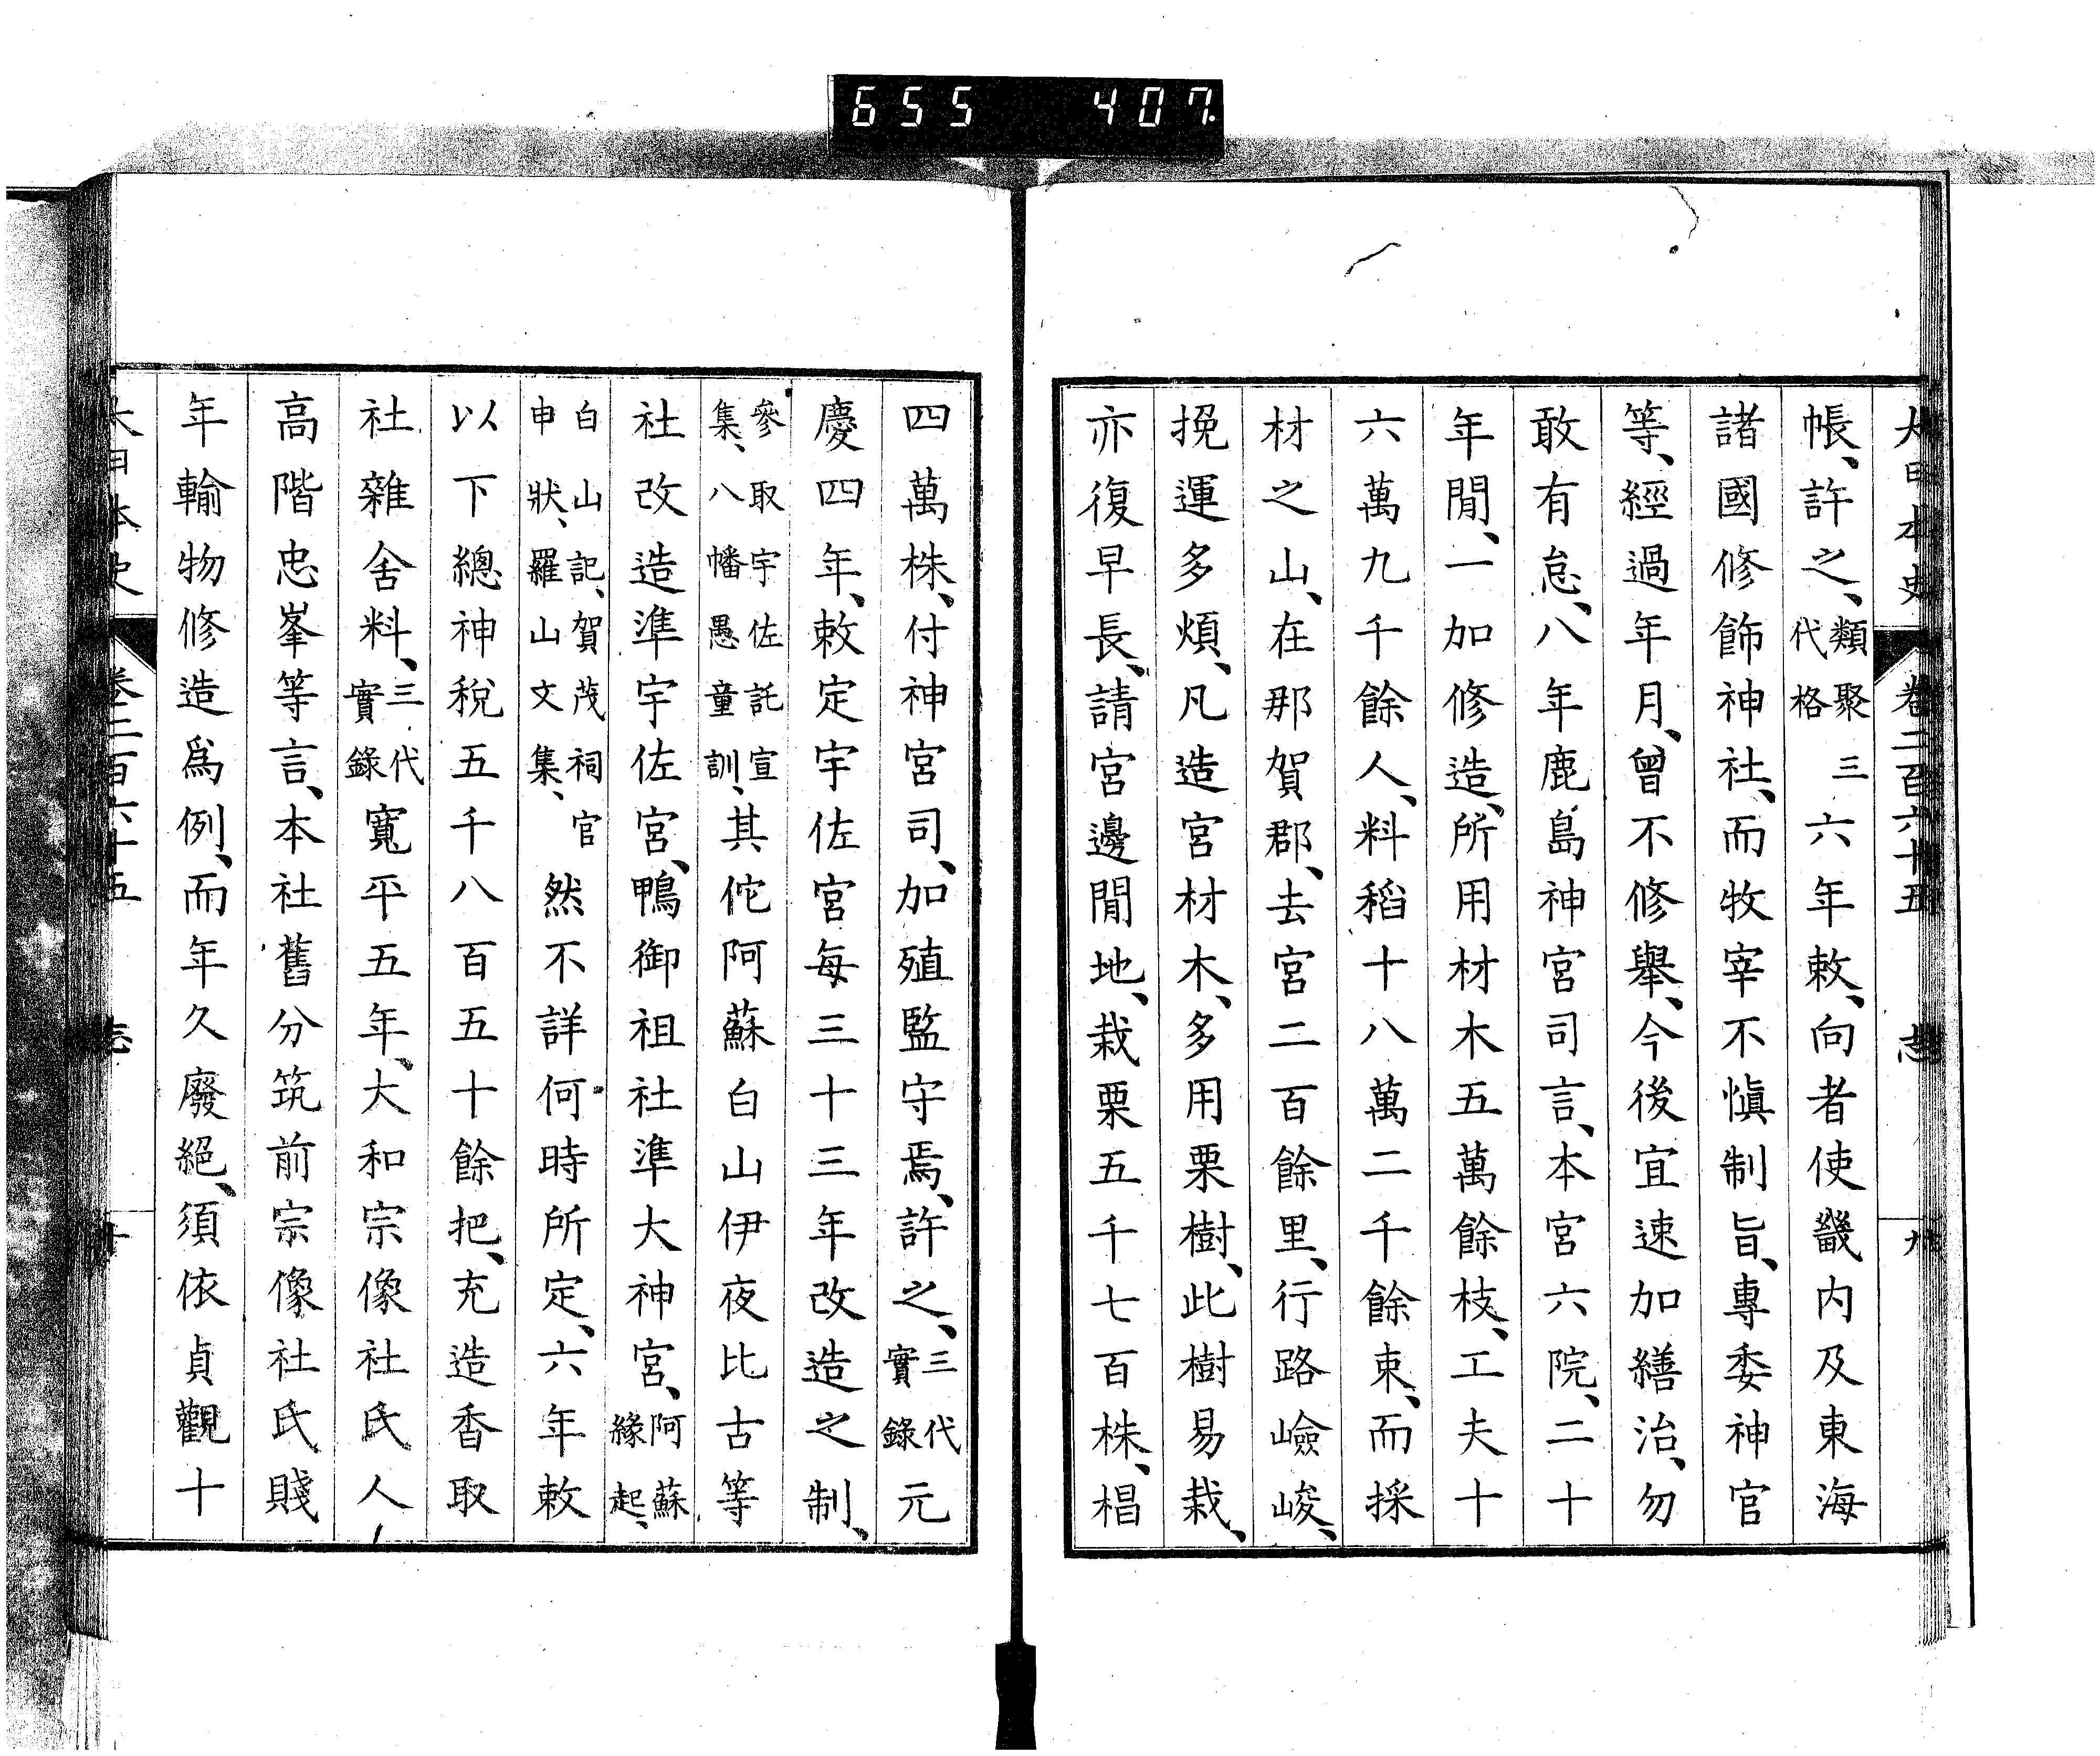 655 407
大日本史 卷二百六十五 志 九
帳、許之、類聚三代格六年敕、向者使畿内及東海
諸國修飾神社、而牧宰不愼制旨、專委神官
等、經過年月、曾不修擧、今後宜速加繕治、勿
敢有怠、八年鹿島神宮司言、本宮六院、二十
年閒、一加修造、所用材木五萬餘枝、工夫十
六萬九千餘人、料稻十八萬二千餘束、而採
材之山、在那賀郡、去宮二百餘里、行路嶮峻、
挽運多煩、凡造宮材木、多用栗樹、此樹易栽、
亦復早長、請宮邊閒地、栽栗五千七百株、椙
四萬株、付神宮司、加殖監守焉、許之、三代實錄元
慶四年、敕定宇佐宮每三十三年改造之制、
參取宇佐託宣集、八幡愚童訓、其佗阿蘇白山伊夜比古等
社改造準宇佐宮、鴨御祖社準大神宮、阿蘇緣起、
白山記、賀茂祠官申狀、羅山文集、然不詳何時所定、六年敕
以下總神稅五千八百五十餘把、充造香取
社雜舍料、三代實錄寬平五年、大和宗像社氏人
高階忠峯等言、本社舊分筑前宗像社氏賤
年輸物修造爲例、而年久廢絕、須依貞觀十
大日本史 卷二百六十五 志 十